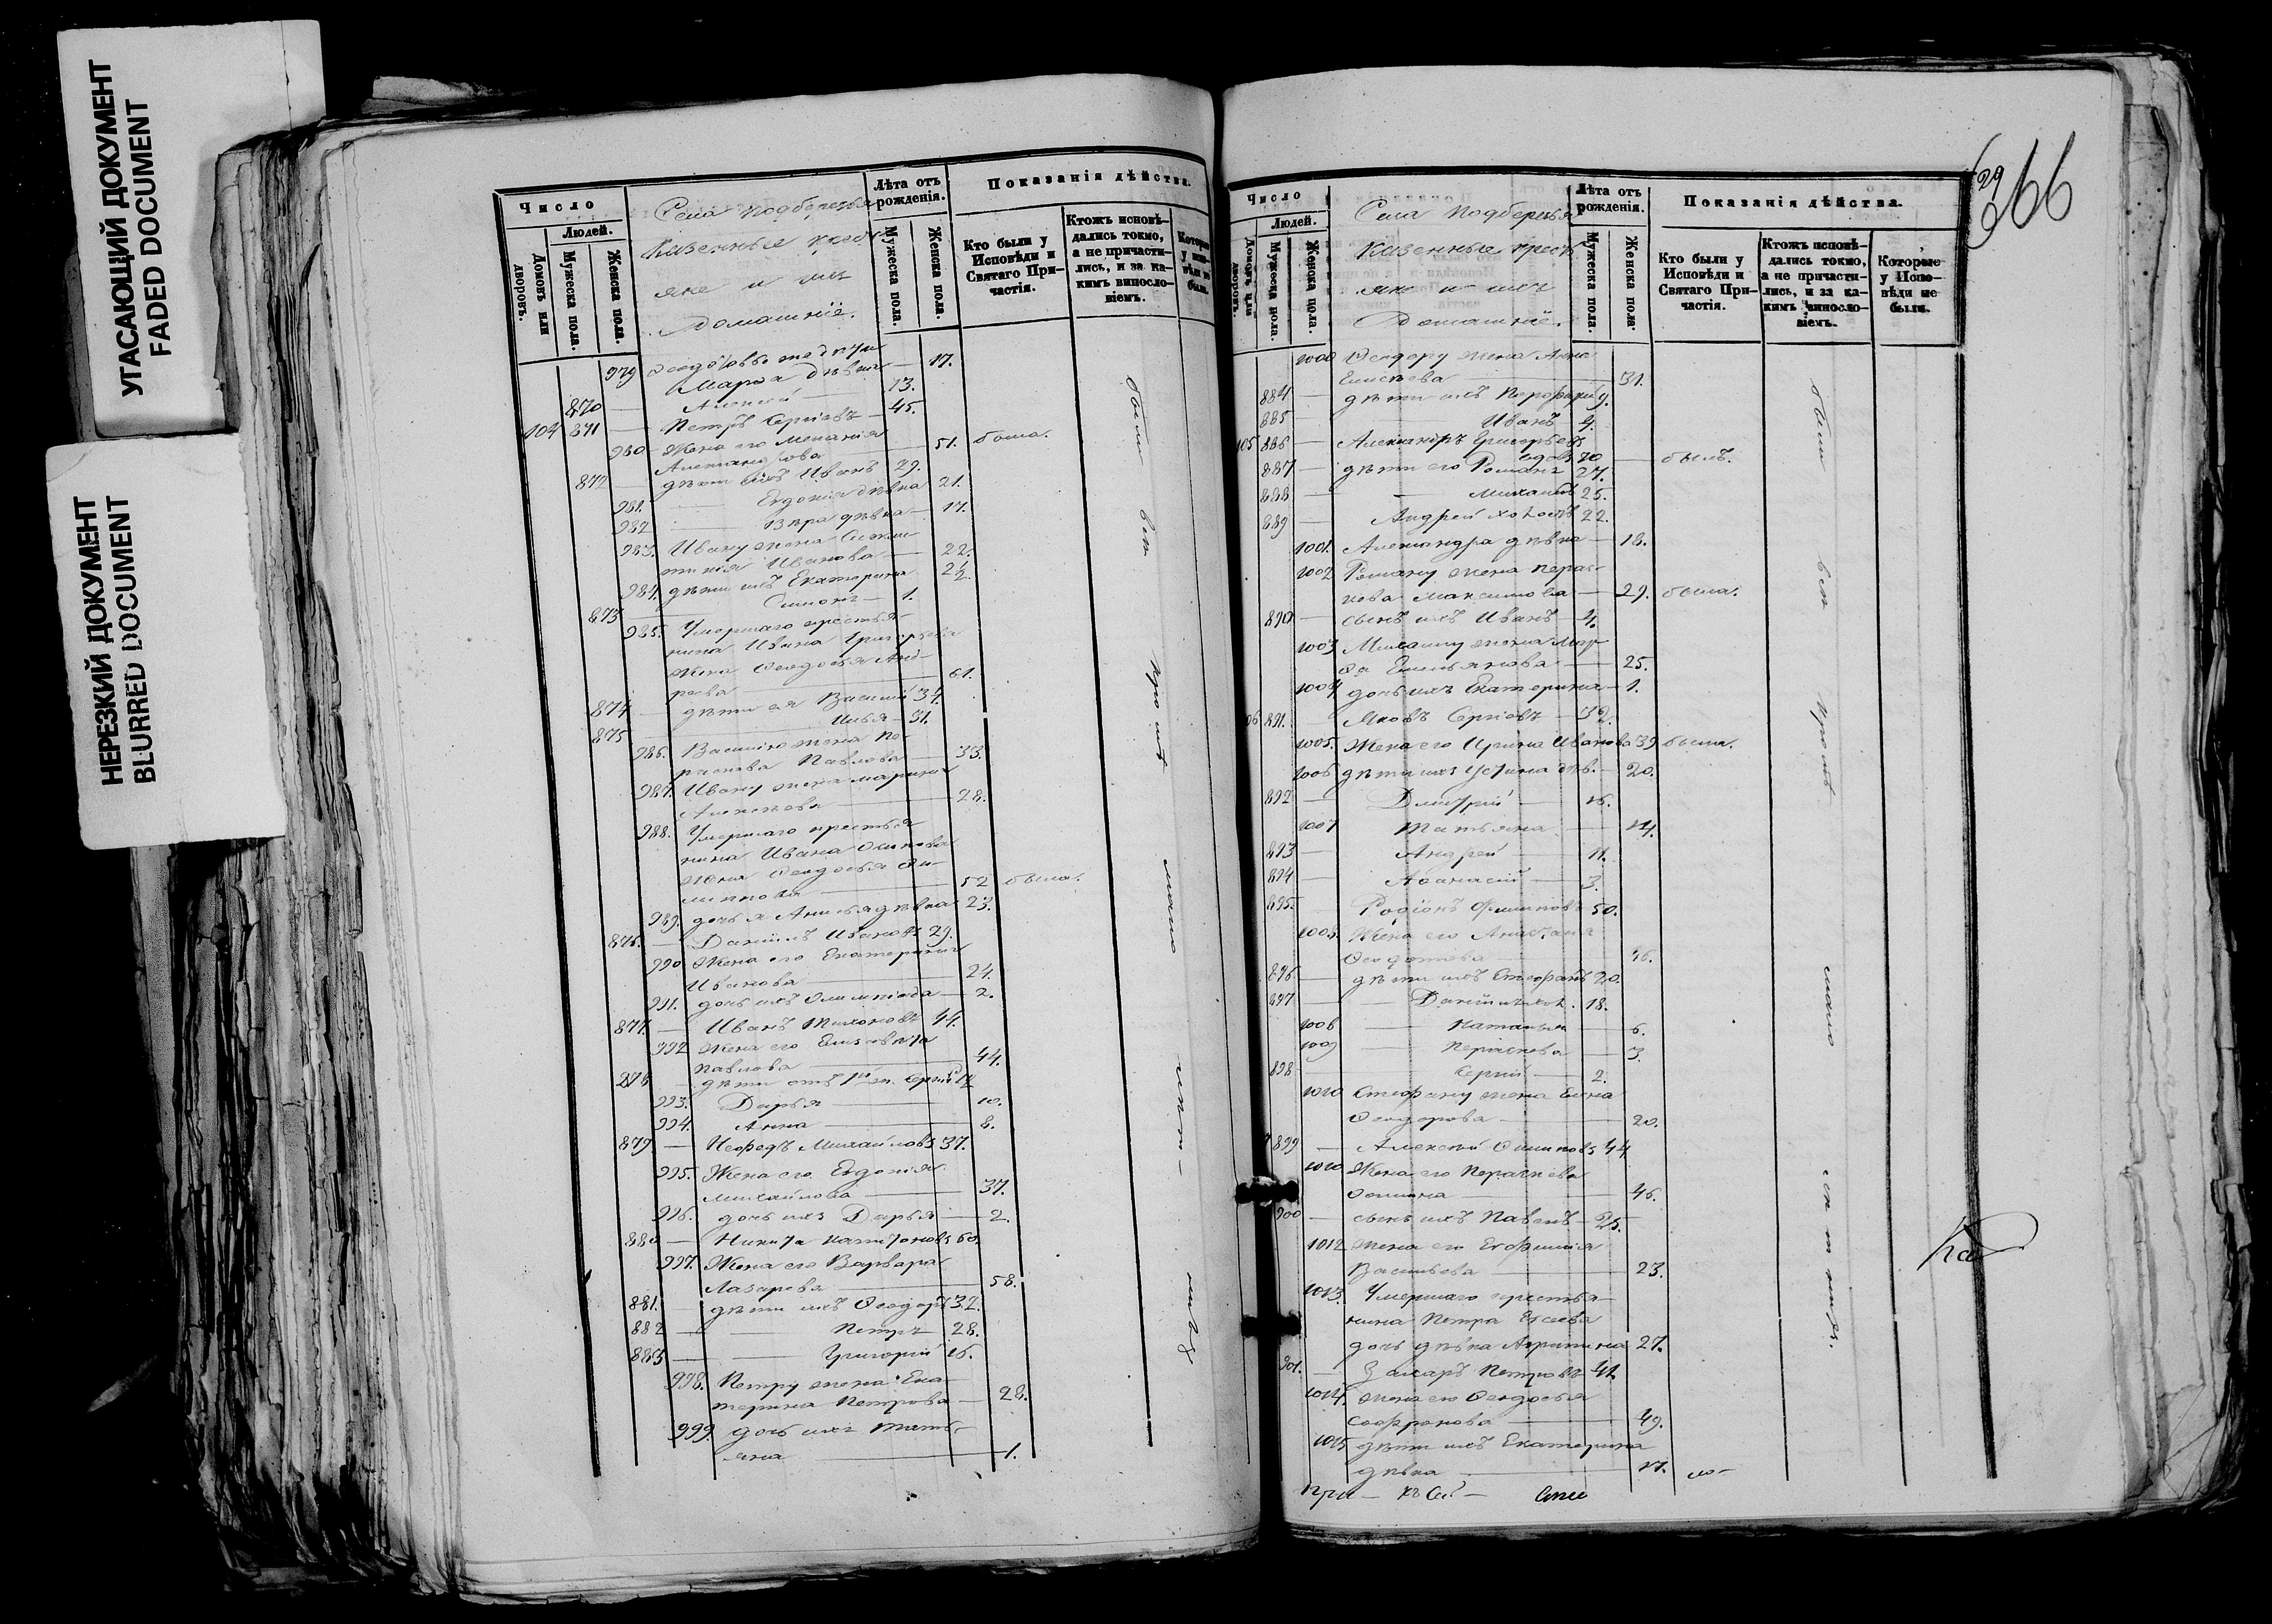 УГАСАЮЩИЙ ДОКУМЕНТ
FADED DOCUMENT
НЕРЕЗКИЙ ДОКУМЕНТ
BLURRED DOCUMENT
Число
Людей.
Домовъ или дворовъ.
Мужеска пола.
Женска пола.
Села Подберезья
Казенные крест
яне и ихъ
Домашніе.
Лѣта отъ рожденія.
Мужеска пола.
Женска пола.
Показанія дѣйства.
Кто были у Исповѣди и Святаго Причастія.
Ктожъ исповѣдались токмо, а не причастились, и за какимъ винословіемъ.
979
Марѳа дѣвка — 17.
870 — Алексей 13.
104 871 — Петръ Сергіевъ — 45.
980 Жена его Меланія
Александрова — 51. была.
872 — дѣти ихъ Иванъ 29.
981. Евдокія дѣвка 21.
982 Вѣра дѣвка — 17.
983. Ивану жена
Иванова — 22.
984. дѣти ихъ Екатерина 2½
873 — Симонъ — 1.
985. Умершаго крестья-
нина Ивана Григорьева
жена Ѳеодосья Анд-
реева — 61.
874 — дѣти ея Василій 34.
875 — Илья — 31.
986. Василію жена Па-
раскева Павлова — 33.
987. Ивану жена Марина
Алексѣева — 28.
988. Умершаго крестья-
нина Ивана Осипова
жена Ѳеодосья Фи-
липпова — 52 была.
989. дочь я Анисья дѣвка 23.
876. — Даніилъ Ивановъ 29.
990 Жена его Екатерина
Иванова — 24.
991. дочь ихъ Олимпіада — 2.
877. — Иванъ Тихоновъ 44.
992 Жена его Елизавета
Павлова — 44.
993. Дарья — 10.
994. Анна — 8.
879 — Нефедъ Михайловъ 37.
995. Жена его Евдокія
Михайлова — 37.
996. дочь ихъ Дарья — 2.
880 — Никита Капитоновъ 60.
997. Жена его Варвара
Лазарева — 58.
881. — дѣти ихъ Ѳеодоръ 32.
882 — Петръ 28.
883 — Григорій 16.
998. Петру жена Ека-
терина Петрова — 28.
999. дочь ихъ Тать-
яна — 1.
были все
29
266
Число
Людей.
Домовъ или дворовъ.
Мужеска пола
Женска пола.
Села Подберезья
Казенные крест
яне и ихъ
Домашніе.
Лѣта отъ рожденія.
Мужеска пола.
Женска пола.
Показанія дѣйства.
Кто были у Исповѣди и Святаго Причастія.
Ктожъ исповѣдались токмо, а не причастились, и за какимъ винословіемъ.
Которые у Исповѣди не были.
1000 Ѳеодору жена Анна
Елисѣева — 31.
884 — дѣти ихъ Порофирій 9.
885 — Иванъ 4.
105 886 — Александръ Григорьевъ
вдовъ 70 — былъ.
887 — дѣти его Романъ 27.
888 — Михаилъ 25.
889 — Андрей холостъ 22.
1001. Александра дѣвка — 18.
1002 Роману жена Парас-
кева Максимова — 29. была.
890 — сынъ ихъ Иванъ — 4.
1003 Михаилу жена Мар-
ѳа Емельянова — 25.
1004 дочь ихъ Екатерина — 1.
106 891. — Яковъ Сергіевъ — 39.
1005. Жена его Ирина Иванова 39 была.
1006 дѣти ихъ Устина дѣв. — 20.
892 — Дмитрій — 16.
1007 Татьяна — 14.
893 — Андрей — 11.
894 — Аѳанасій — 3.
895. — Родіонъ Филиповъ 50.
1008. Жена его Анастасія
Ѳедотова — 46.
896 — дѣти ихъ Стефанъ 20.
897 — Даніилъ хол. 18.
1008 — Наталья — 6.
1009 — Параскева — 3.
898 — Сергій — 2.
1010 Стефану жена Елена
Ѳеодорова — 20.
899 — Алексѣй Осиповъ 44
1010 Жена его Параскева
Ѳомина — 46.
900 — сынъ ихъ Павелъ — 25.
1012 жена его Евфимія
Васильева — 23.
1013. Умершаго крестья-
нина Петра Евсеева
дочь дѣвка Акулина 27.
901. — Захаръ Петровъ 41.
1014. жена его Ѳеодосья
Софронова — 49.
1015 дѣти ихъ Екатерина
дѣвка — 17.
были все